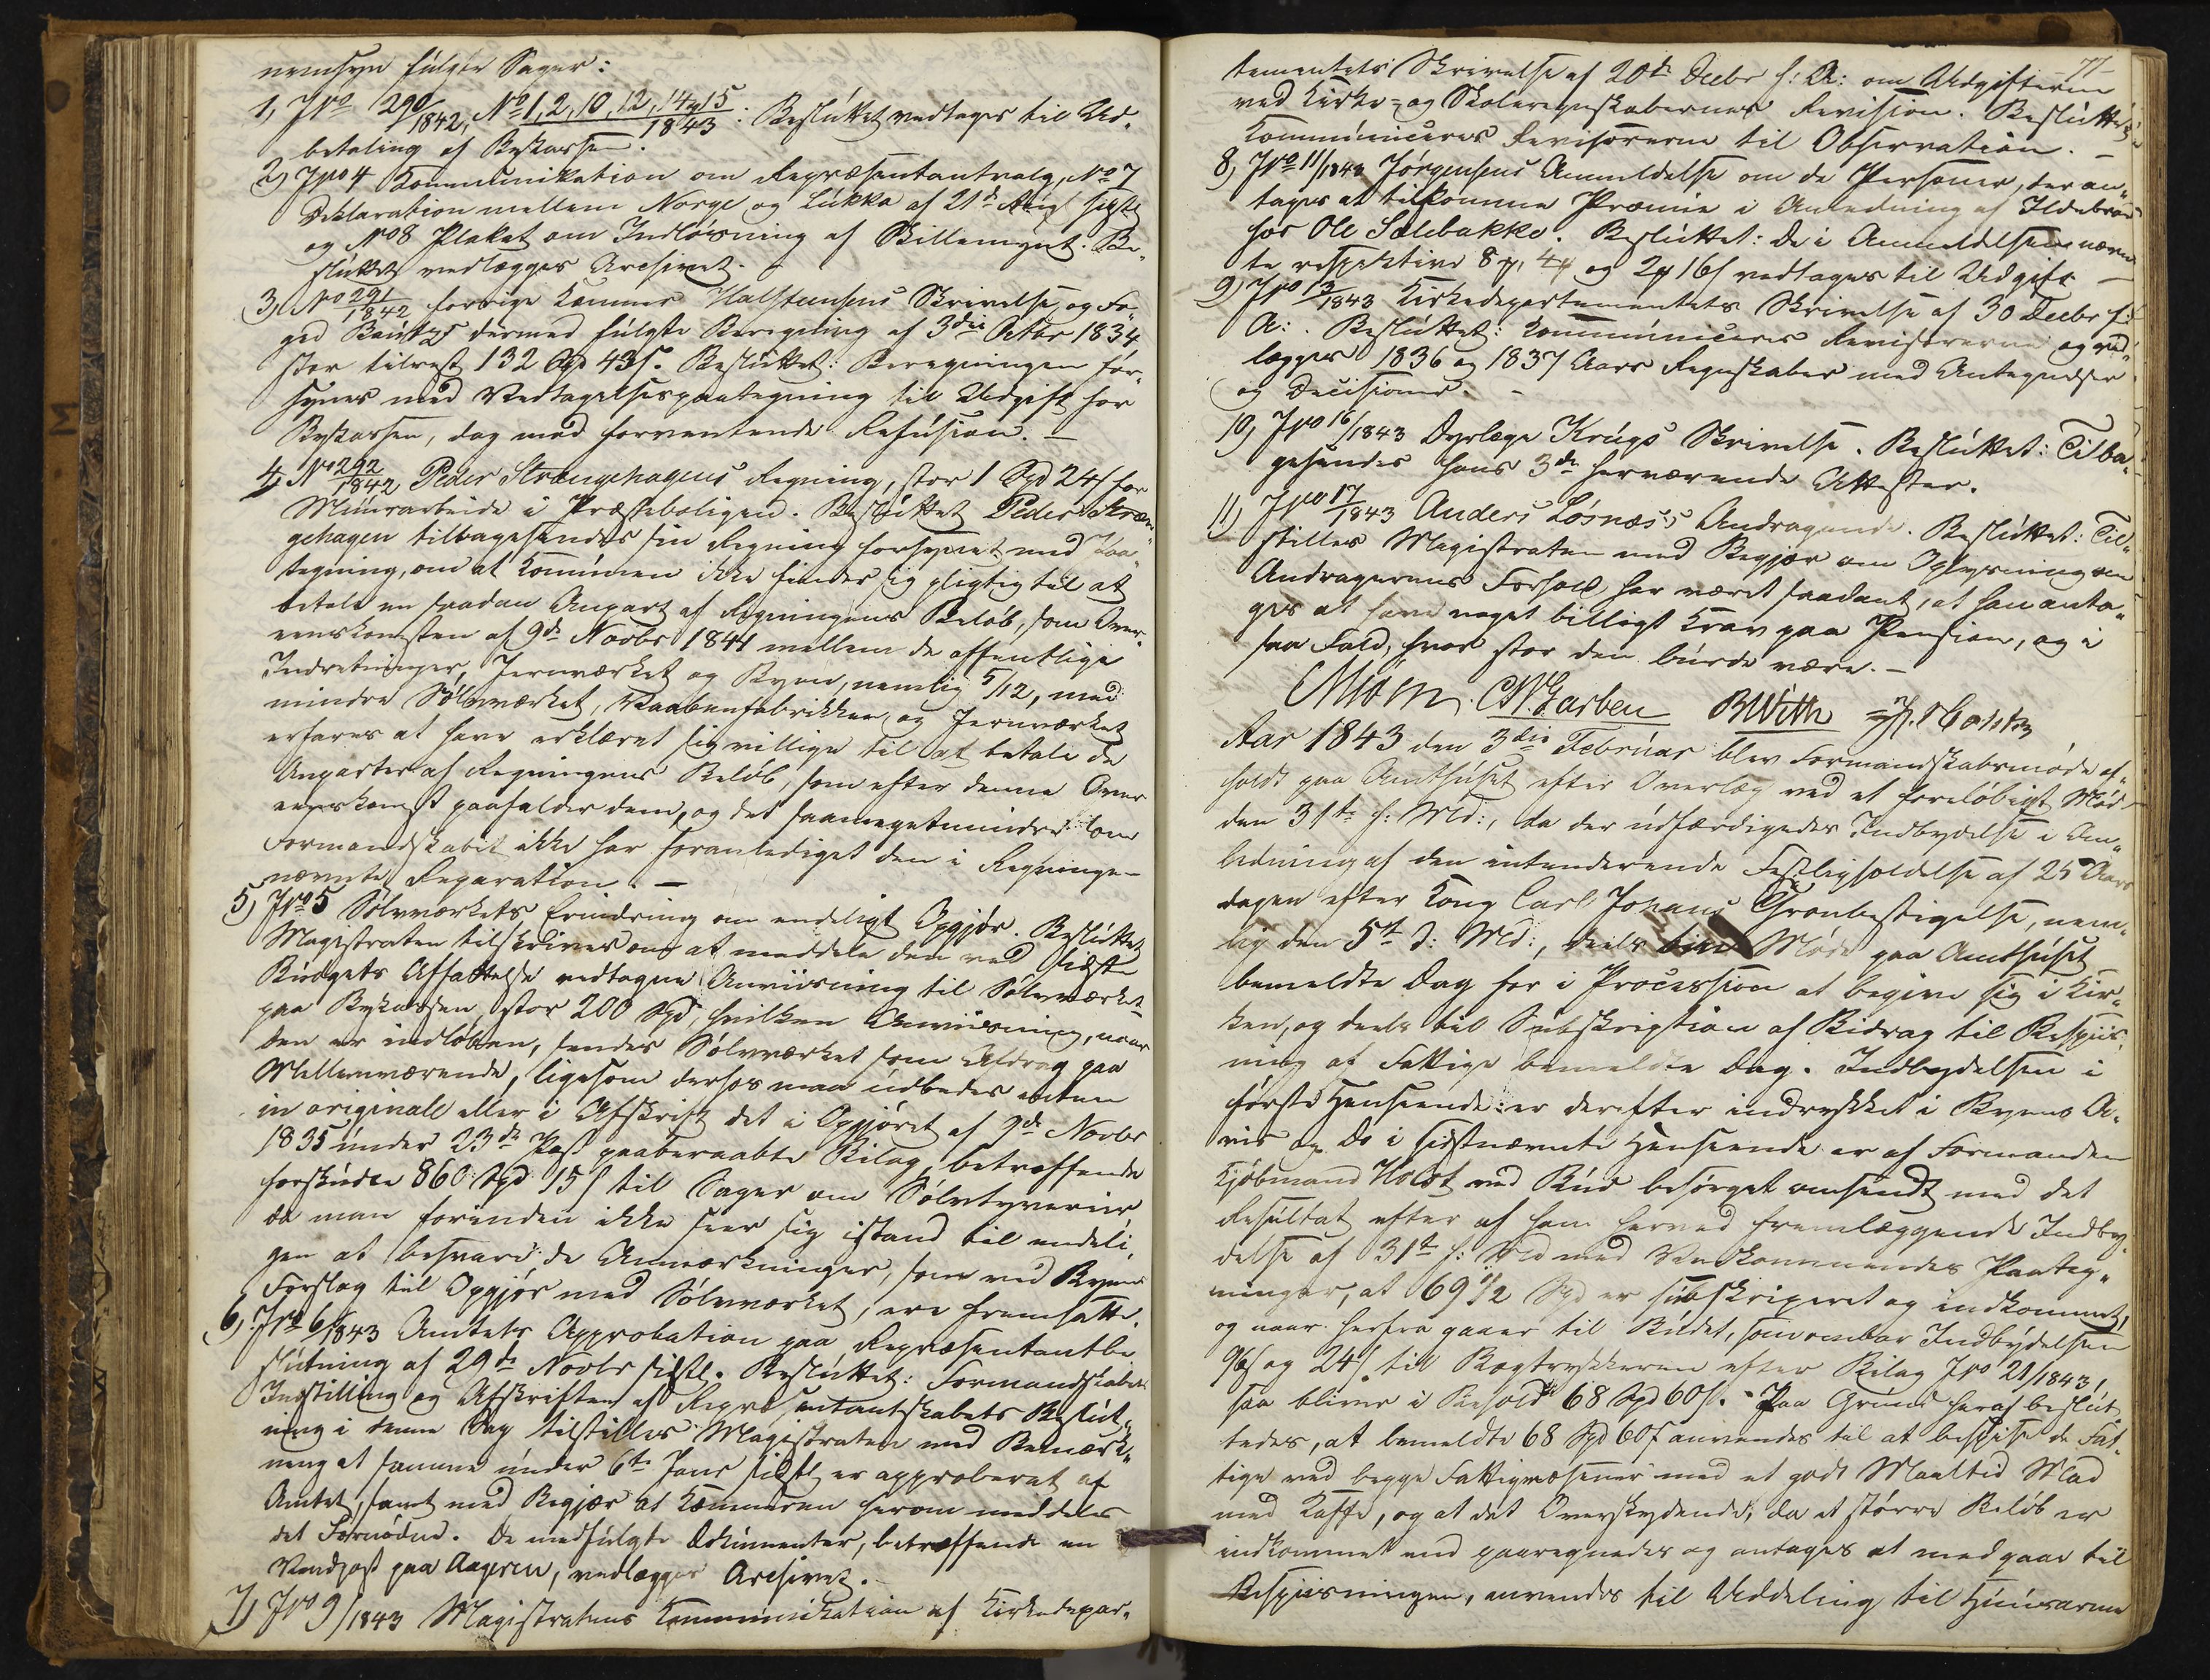 nemsyn fulgte Sager:
1, JNo 290/1842, No 1, 2, 10, 12, 14 og 15/1843: Besluttet vedtages til Ud-
betaling af Bykassen.
2) JNo 4 Kommunikation om Repræsentantvalg, No 7
Deklaration mellem Norge og Lukka af 21de Aug sidstl
og No 8 Plakat om Indløsning af Billemynt. Be-
sluttet vedlægges Archivet.
3, No 291/1842 forrige Kæmner Halstensens Skrivelse, og Fo-
ged Bautz's dermed fulgte Beregning af 3die Octbr 1834
stor tilrest 132 Spd 43 s. Besluttet: Beregningen for-
synes med Vedtagelsespaategning til Udgift for
Bykassen, dog mod forventende Refusion. –
4, No 292/1842 Peder Strængehagens Regning, stor 1 Spd 24 s for
Muurarbeide i Præsteboligen. Besluttet Peder Stræn-
gehagen tilbagesendes sin Regning forsynet med Paa-
tegning, om at Kommunen ikke finder sig pligtig til at
betale en saadan Anpart af Regningens Beløb, som Over-
eenskomsten af 9de Novbr 1841 mellem de offentlige
Indretninger, Jernværket og Byen, nemlig 5/12, med
mindre Sølvværket, Vaabenfabrikken og Jernværket
erfares at have erklæret sig villige til at betale de
Anparter af Regningens Beløb, som efter denne Over-
eenskomst paafalder dem, og det saameget mindre som
Formandskabet ikke har foranlediget den i Regningen
nævnte Reparation. –
5) JNo 5 Sølvværkets Erindring om endeligt Opgjør. Besluttet
Magistraten tilskrives om at meddele den ved sidste
Budgets Affattelse vedtagne Anviisning til Sølvværket
paa Bykassen, stor 200 Spd, hvilken Anviisning, naar
den er indløben, sendes Sølvværket som Afdrag paa
Mellemværende, ligesom derhos maa udbedes enten
in originale eller i Afskrift det i Opgjøret af 9de Novbr
1835 under 23de Post paaberaabte Bilag, betræffende
forskudte 860 Spd 15 s til Sager om Sølvtyverier
da man forinden ikke seer sig istand til endeli-
gen at besvare de Anmærkninger, som ved Byens
Forslag til Opgjør med Sølvværket, ere fremsatte.
6) JNo 6/1843 Amtets Approbation paa Repræsentantbe
slutning af 29de Novbr sidstl. Besluttet: Formandskabets
Indstilling og Afskriften af Repræsentantskabets Beslut-
ning i denne Sag tilstilles Magistraten med Bemærk-
ning at samme under 6te Janr sidstl er approberet af
Amtet, samt med Begjær at Kæmneren herom meddeles
det Fornødne. De medfulgte Dokumenter, betræffende en
Vandpost paa Ageren, vedlægges Archivet.
7) JNo 9/1843 Magistratens Kommunikation af Kirkedepar-
77
tementets Skrivelse af 20de Decbr f: A: om Udgifterne
ved Kirke- og Skoleregnskabernes Revision. Besluttet
Kommuniceres Revisorerne til Observation. –
8, JNo 11/1843 Jørgensens Anmeldelse om de Personer, der an-
tages at tilkomme Præmie i Anledning af Ildebrand
hos Ole Sølebakke. Besluttet: De i Anmeldelsen nævn
te respektive 8, 4 og 2 16 s vedtages til Udgift –
9, JNo 13/1843 Kirkedepartementets Skrivelse af 30 Decbr f:
A: . Besluttet: Kommuniceres Revisorerne og ved-
lægges 1836 og 1837 Aars Regnskaber med Antegnelser
og Decisioner. –
10, JNo 16/1843 Dyrlæge Krugs Skrivelse. Besluttet: Tilba-
gesendes hans 3de herværende Attester.
11, JNo 17/1843 Anders Løsnæs's Andragende. Besluttet: Til-
stilles Magistraten med Begjær om Oplysning om
Andragerens Forhold har været saadant, at han anta-
ges at have noget billigt Krav paa Pension, og i
saa Fald, hvor stor den burde være. –
CN Garben BWith
Aar 1843 den 3die Februar blev Formandskabsmøde af-
holdt paa Amthuset efter Overlæg ved et foreløbigt Møde
den 31te f: Md:, da der udfærdigedes Indbydelse i An-
ledning af den intenderende Festligholdelse af 25 Aars
dagen efter Kong Carl Johans Thronbestigelse, nem-
lig den 5te d: Md:, deels Møde paa Amthuset
bemeldte Dag for i Procession at begive sig i Kir-
ken, og deels til Subskription af Bidrag til Bespiis-
ning af Fattige bemeldte Dag. Indbydelsen i
første Henseende er derefter indrykket i Byens A-
vis og do i sidstnævnte Henseende er af Formanden
Kjøbmand Holst ved Bud besørget omsendt med det
Resultat efter af ham herved fremlæggende Indby-
delse af 31te f: Md med Vedkommendes Paateg-
ninger, at 69 1/2 Spd er subskriperet og indkommet,
og naar herfra gaaer til Budet, som ombar Indbydelsen
96 s og 24 s til Bogtrykkeren efter Bilag JNo 21/1843,
saa bliver i Behold 68 Spd 60 s. Paa Grund heraf beslut-
tedes, at bemeldte 68 Spd 60 s anvendes til at bespise de Fat-
tige ved begge Fattigvæsener med et godt Maaltid Mad
med Kaffe, og at det Overskydende, da et større Beløb er
indkommet end paaregnedes og antages at medgaae til
Bespiisningen, anvendes til Uddeling til Huusarme